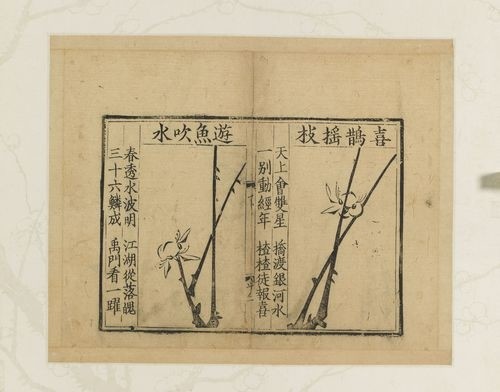 喜鵲摇枝
天上會雙星　橋渡銀河水
一別動經年　楂楂徒報喜
遊魚吹水
春透水波明　江湖從落魄
三十六鱗成　禹門看一躍